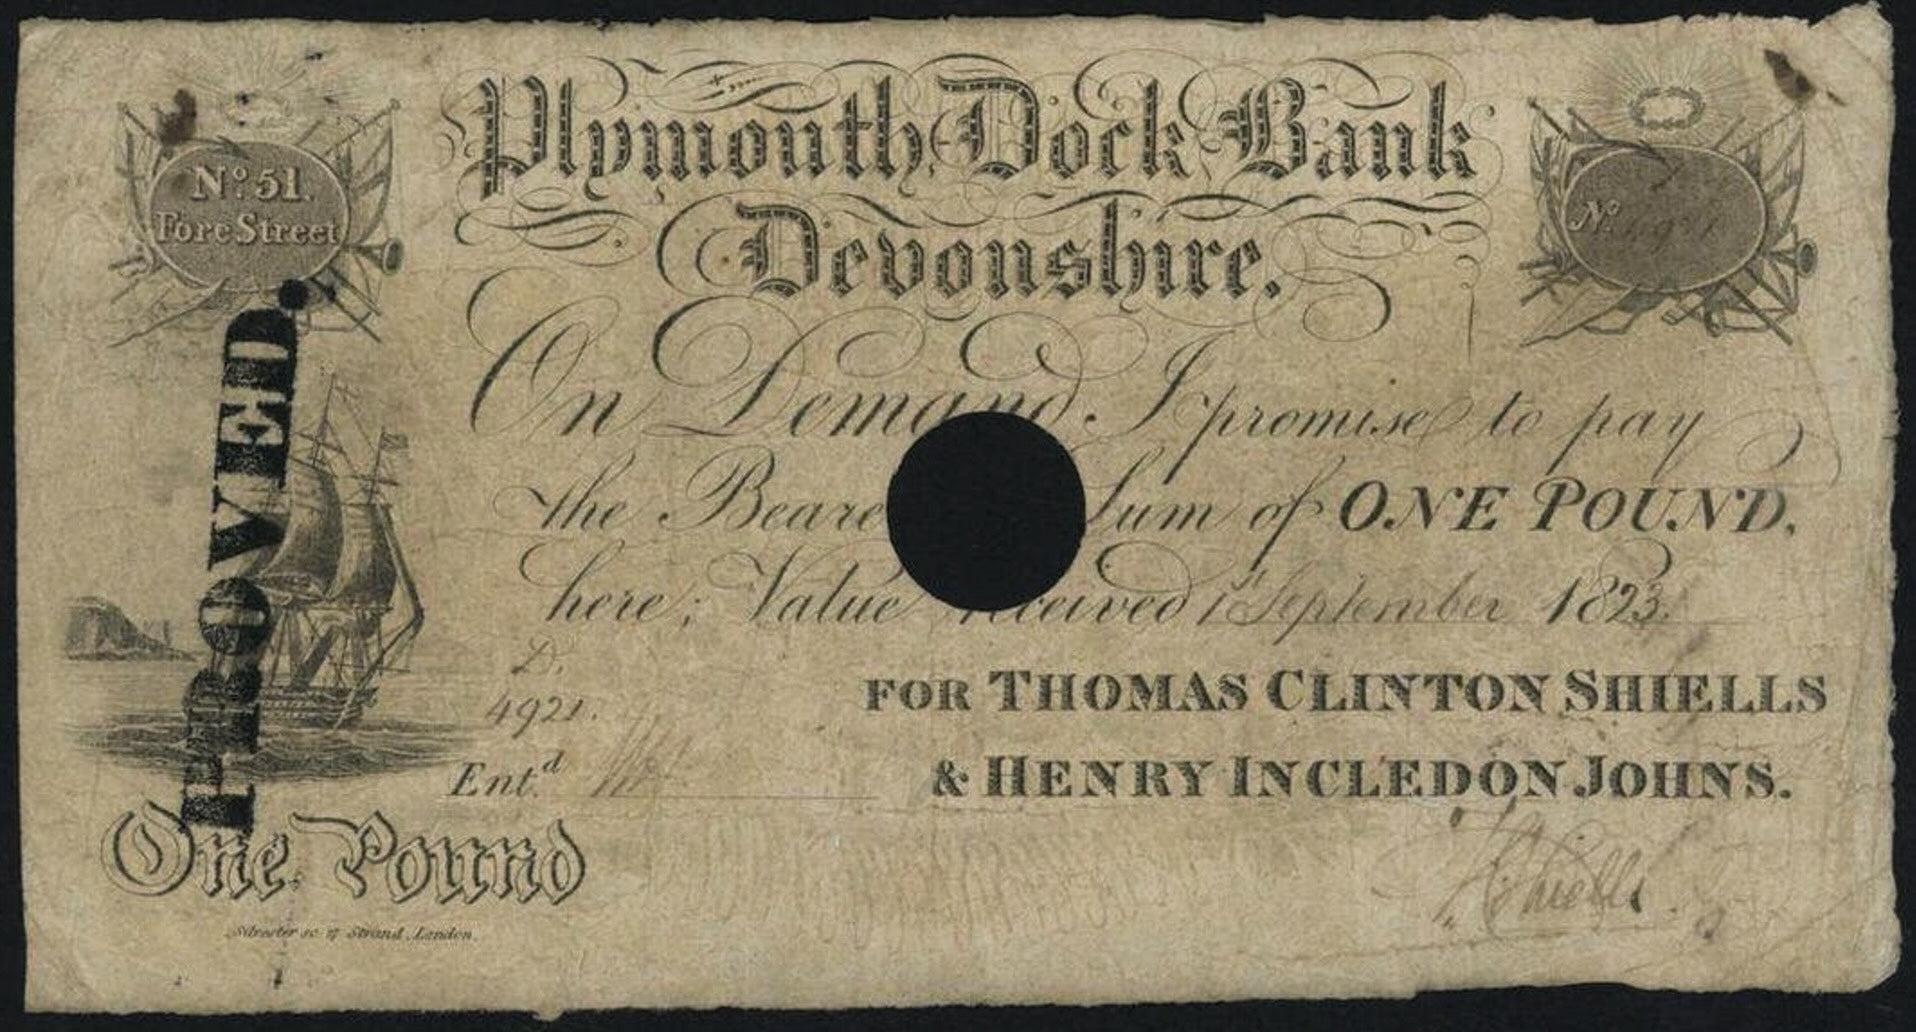 Plymouth Dock Bank
Devonshire.
No. 51.
Fore Street
No
On Demand I promise to pay
the Beare Sum of ONE POUND,
here; Value received 1st September 1823.
D.
4921.
FOR THOMAS CLINTON SHIELLS
Entd.
& HENRY INCLEDON JOHNS.
One Pound
Silvester sc. 27 Strand, London.
Shiells
PROVED.